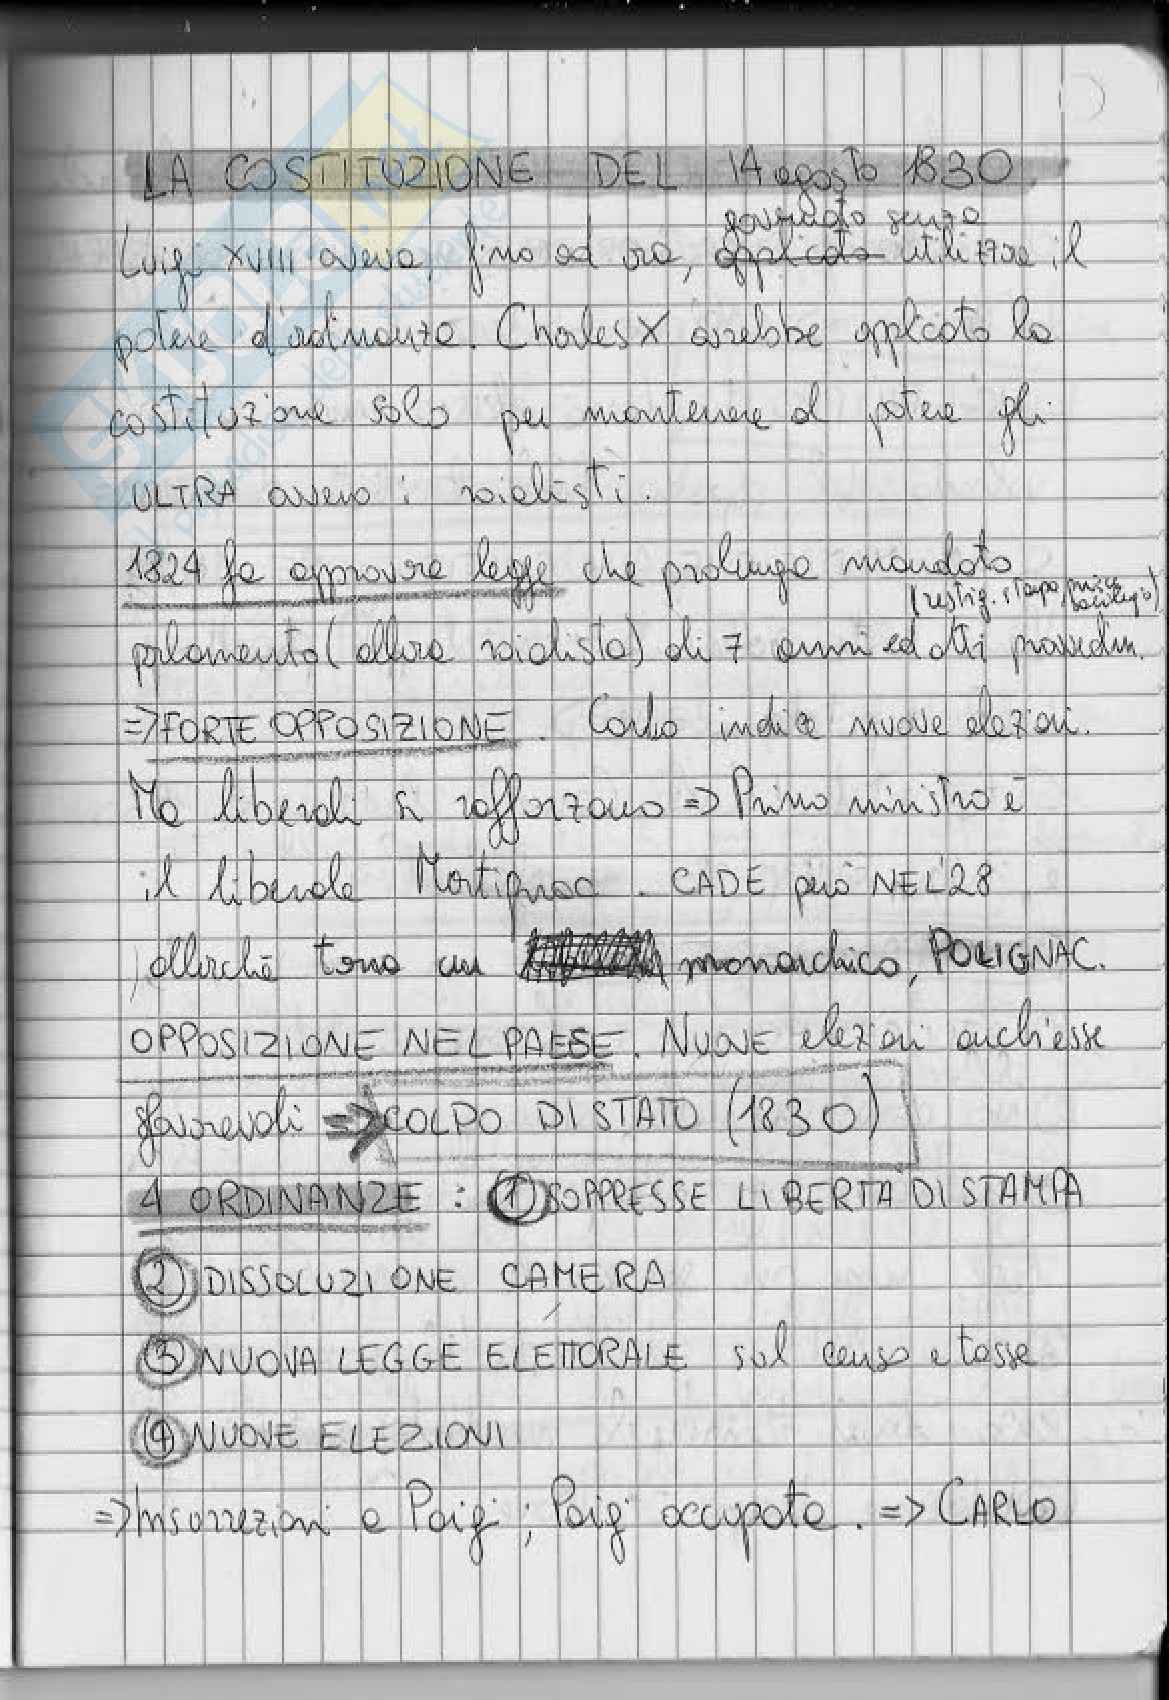 LA COSTITUZIONE DEL 14 agosto 1830
governato senza
Luigi XVIII aveva, fino ad ora, applicato utilizzare il
potere d'ordinanza. Charles X avrebbe applicato la
costituzione solo per mantenere al potere gli
ULTRA ovvero i realisti.
1824 fa approvare legge che prolunga mandato
(restriz. stampa, sacrilegio)
parlamento (allora realista) di 7 anni ed altri provvedim.
=> FORTE OPPOSIZIONE. Carlo indice nuove elezioni.
Ma liberali si rafforzano => Primo ministro è
il liberale Martignac. CADE però NEL 28
allorché torna un monarchico, POLIGNAC.
OPPOSIZIONE NEL PAESE. NUOVE elezioni anch'esse
sfavorevoli => COLPO DI STATO (1830)
4 ORDINANZE: 1 SOPPRESSE LIBERTÀ DI STAMPA
2 DISSOLUZIONE CAMERA
3 NUOVA LEGGE ELETTORALE sul censo e tasse
4 NUOVE ELEZIONI
=> Insurrezioni a Parigi; Parigi occupata. => CARLO
skuola.net